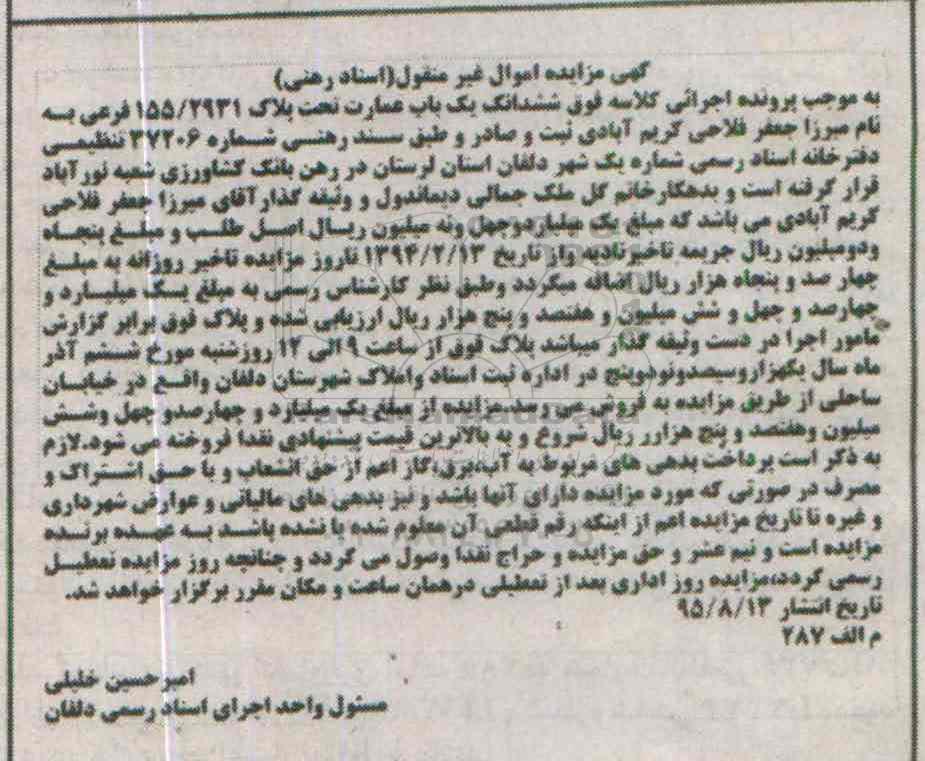 گهی مزایده اموال غیر منقول(اسناد رهنی)
به موجب پرونده اجرائی کلاسه فوق ششدانک یک باب عمارت تحت پلاک ۱۵۵/۲۹۳۱ فرعی به
نام میرزا جعفر فلاحی کریم آبادی ثبت و صادر و طبق سند رهنی شماره ۳۷۲۰۶ تنظیمی
دفترخانه اسناد رسمی شماره یک شهر دلفان استان لرستان در رهن بانک کشاورزی شعبه نورآباد
قرار گرفته است و بدهکارخانم گل ملک جمالی دیماندول و وثیقه گذار آقای میرزا جعفر فلاحی
کریم آبادی می باشد که مبلغ یک میلیاردوچهل ونه میلیون ریال اصل طلب و مبلغ پنجاه
ودومیلیون ریال جریمه تاخیرتادیه واز تاریخ ۱۳۹۴/۲/۱۳ تاروز مزایده تاخیر روزانه به مبلغ
چهار صد و پنجاه هزار ریال اضافه میگردد وطبق نظر کارشناس رسمی به مبلغ یک میلیارد و
چهارصد و چهل و شش میلیون و هفتصد و پنج هزار ریال ارزیابی شده و پلاک فوق برابر گزارش
مامور اجرا در دست وثیقه گذار میباشد پلاک فوق از ساعت ۹ الی ۱۲ روزشنبه مورخ ششم آذر
ماه سال یکهزاروسیصدونودوپنج در اداره ثبت اسناد واملاک شهرستان دلفان واقع در خیابان
ساحلی از طریق مزایده به فروش می رسد.مزایده از مبلغ یک میلیارد و چهارصدو چهل وشش
میلیون وهفتصد و پنج هزارر ریال شروع و به بالاترین قیمت پیشنهادی نقدا فروخته می شود.لازم
به ذکر است پرداخت بدهی های مربوط به آب،برق،گاز اعم از حق انشعاب و یا حق اشتراک و
مصرف در صورتی که مورد مزایده دارای آنها باشد و نیز بدهی های مالیاتی و عوارض شهرداری
و غیره تا تاریخ مزایده اعم از اینکه رقم قطعی آن معلوم شده یا نشده باشد به عهده برنده
مزایده است و نیم عشر و حق مزایده و حراج نقدا وصول می گردد و چنانچه روز مزایده تعطیل
رسمی گردد،مزایده روز اداری بعد از تعطیلی درهمان ساعت و مکان مقرر برگزار خواهد شد.
تاریخ انتشار ۹۵/۸/۱۳
م الف ۲۸۷
امیرحسین خلیلی
مسئول واحد اجرای اسناد رسمی دلفان